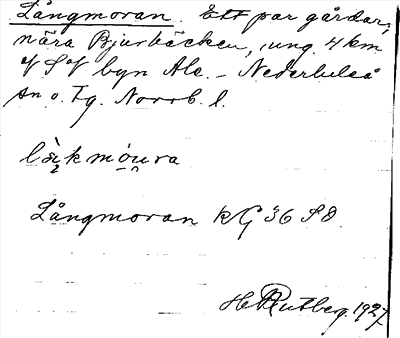 Långmoran. Ett par gårdar,
nära Bjurbäcken, ung. 4 km
byn Ale. – Nederluleå
sn o. Tg. Norrb. l.
Långmoran kG 36 SO
H Rutberg. 1927.